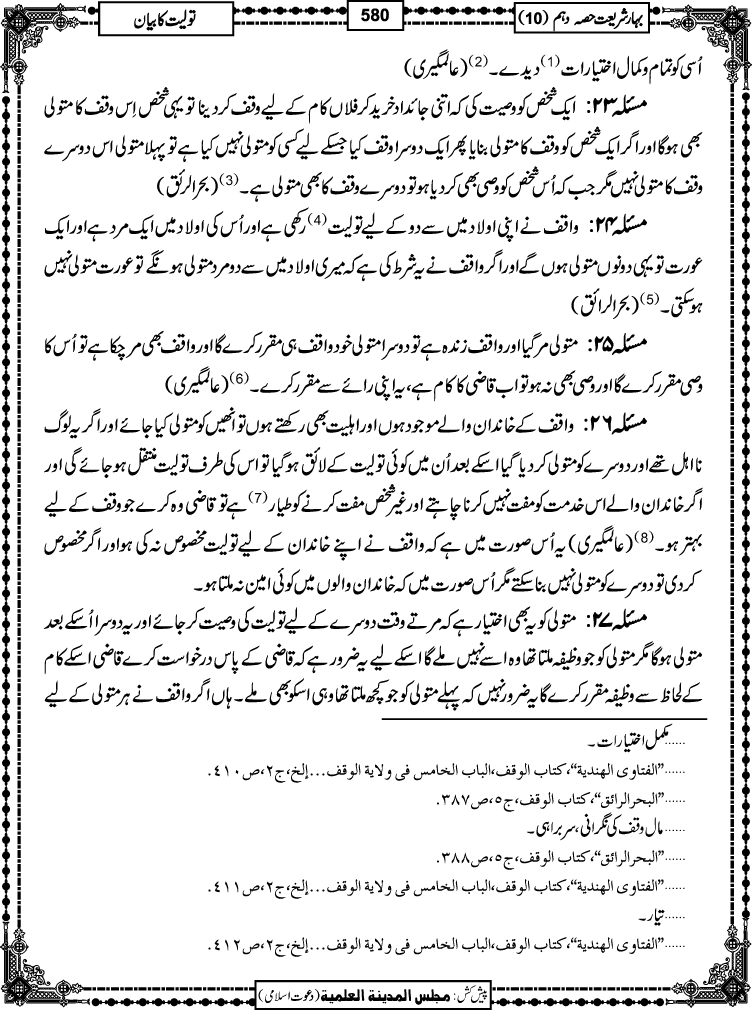 بہارشریعت حصہ دہم (10)
580
تولیت کا بیان
اُسی کو تمام و کمال اختیارات (1) دیدے۔ (2) (عالمگیری)
مسئلہ ۲۳: ایک شخص کو وصیت کی کہ اتنی جائداد خرید کر فلاں کام کے لیے وقف کردینا تو یہی شخص اِس وقف کا متولی
بھی ہوگا اور اگر ایک شخص کو وقف کا متولی بنایا پھر ایک دوسرا وقف کیا جسکے لیے کسی کو متولی نہیں کیا ہے تو پہلا متولی اس دوسرے
وقف کا متولی نہیں مگر جب کہ اُس شخص کو وصی بھی کردیا ہو تو دوسرے وقف کا بھی متولی ہے۔ (3) (بحرالرئق)
مسئلہ ۲۴: واقف نے اپنی اولاد میں سے دو کے لیے تولیت (4) رکھی ہے اور اُس کی اولاد میں ایک مرد ہے اور ایک
عورت تو یہی دونوں متولی ہوں گے اور اگر واقف نے یہ شرط کی ہے کہ میری اولاد میں سے دو مرد متولی ہونگے تو عورت متولی نہیں
ہوسکتی۔ (5) (بحرالرائق)
مسئلہ ۲۵: متولی مرگیا اور واقف زندہ ہے تو دوسرا متولی خود واقف ہی مقرر کرے گا اور واقف بھی مرچکا ہے تو اُس کا
وصی مقرر کرے گا اور وصی بھی نہ ہو تو اب قاضی کا کام ہے، یہ اپنی رائے سے مقرر کرے۔ (6) (عالمگیری)
مسئلہ ۲۶: واقف کے خاندان والے موجود ہوں اور اہلیت بھی رکھتے ہوں تو انھیں کو متولی کیا جائے اور اگر یہ لوگ
نااہل تھے اور دوسرے کو متولی کردیا گیا اسکے بعد اُن میں کوئی تولیت کے لائق ہوگیا تو اس کی طرف تولیت منتقل ہوجائے گی اور
اگر خاندان والے اس خدمت کو مفت نہیں کرنا چاہتے اور غیر شخص مفت کرنے کو طیار (7) ہے تو قاضی وہ کرے جو وقف کے لیے
بہتر ہو۔ (8) (عالمگیری) یہ اُس صورت میں ہے کہ واقف نے اپنے خاندان کے لیے تولیت مخصوص نہ کی ہو اور اگر مخصوص
کردی تو دوسرے کو متولی نہیں بناسکتے مگر اُس صورت میں کہ خاندان والوں میں کوئی امین نہ ملتا ہو۔
مسئلہ ۲۷: متولی کو یہ بھی اختیار ہے کہ مرتے وقت دوسرے کے لیے تولیت کی وصیت کر جائے اور یہ دوسرا اُسکے بعد
متولی ہوگا مگر متولی کو جو وظیفہ ملتا تھا وہ اسے نہیں ملے گا اسکے لیے یہ ضرور ہے کہ قاضی کے پاس درخواست کرے قاضی اسکے کام
کے لحاظ سے وظیفہ مقرر کرے گا یہ ضرور نہیں کہ پہلے متولی کو جو کچھ ملتا تھا وہی اسکو بھی ملے۔ ہاں اگر واقف نے ہر متولی کے لیے
......مکمل اختیارات۔
......”الفتاوی الهندیة“، کتاب الوقف، الباب الخامس فی ولایة الوقف...إلخ، ج۲، ص۴۱۰.
......”البحرالرائق“، کتاب الوقف، ج۵، ص۳۸۷.
......مال وقف کی نگرانی، سربراہی۔
......”البحرالرائق“، کتاب الوقف، ج۵، ص۳۸۸.
......”الفتاوی الهندیة“، کتاب الوقف، الباب الخامس فی ولایة الوقف...إلخ، ج۲، ص۴۱۱.
......تیار۔
......”الفتاوی الهندیة“، کتاب الوقف، الباب الخامس فی ولایة الوقف...إلخ، ج۲، ص۴۱۲.
پیش کش: مجلس المدینة العلمیة (دعوت اسلامی)